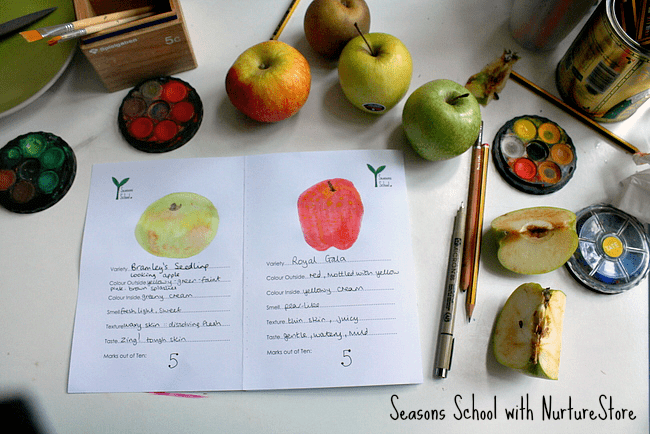 Sunnyglen
5c
Seasons
School
Variety Bramley's Seedling
cooking apple
Colour Outside yellowy-green-faint
pink-brown splotches
Colour Inside greeny cream
Smell fresh light, sweet
Texture waxy skin - dissolving flesh
Taste Zing! tough skin
Marks out of Ten: 5
Seasons
School
Variety Royal Gala
Colour Outside red, mottled with yellow
Colour Inside yellowy cream
Smell pear-like
Texture thin skin, juicy
Taste gentle, watery, mild
Marks out of Ten: 5
Seasons School with NurtureStore